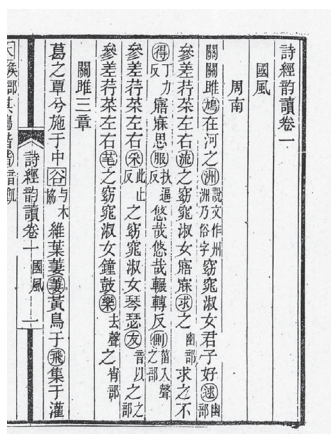 詩經韵讀卷一
國風
周南
關關雎鳩在河之洲說文作州洲乃俗字窈窕淑女君子好逑幽部
參差荇菜左右流之窈窕淑女寤寐求之幽部求之不
得丁力反寤寐思服扶逼反悠哉悠哉輾轉反側菑入聲之部
參差荇菜左右采此止反之窈窕淑女琴瑟友音以之之部
參差荇菜左右芼之窈窕淑女鐘鼓樂去聲之宵部
關雎三章
葛之覃兮施于中谷与木協維葉萋萋黃鳥于飛集于灌
詩經韵讀卷一 國風 一